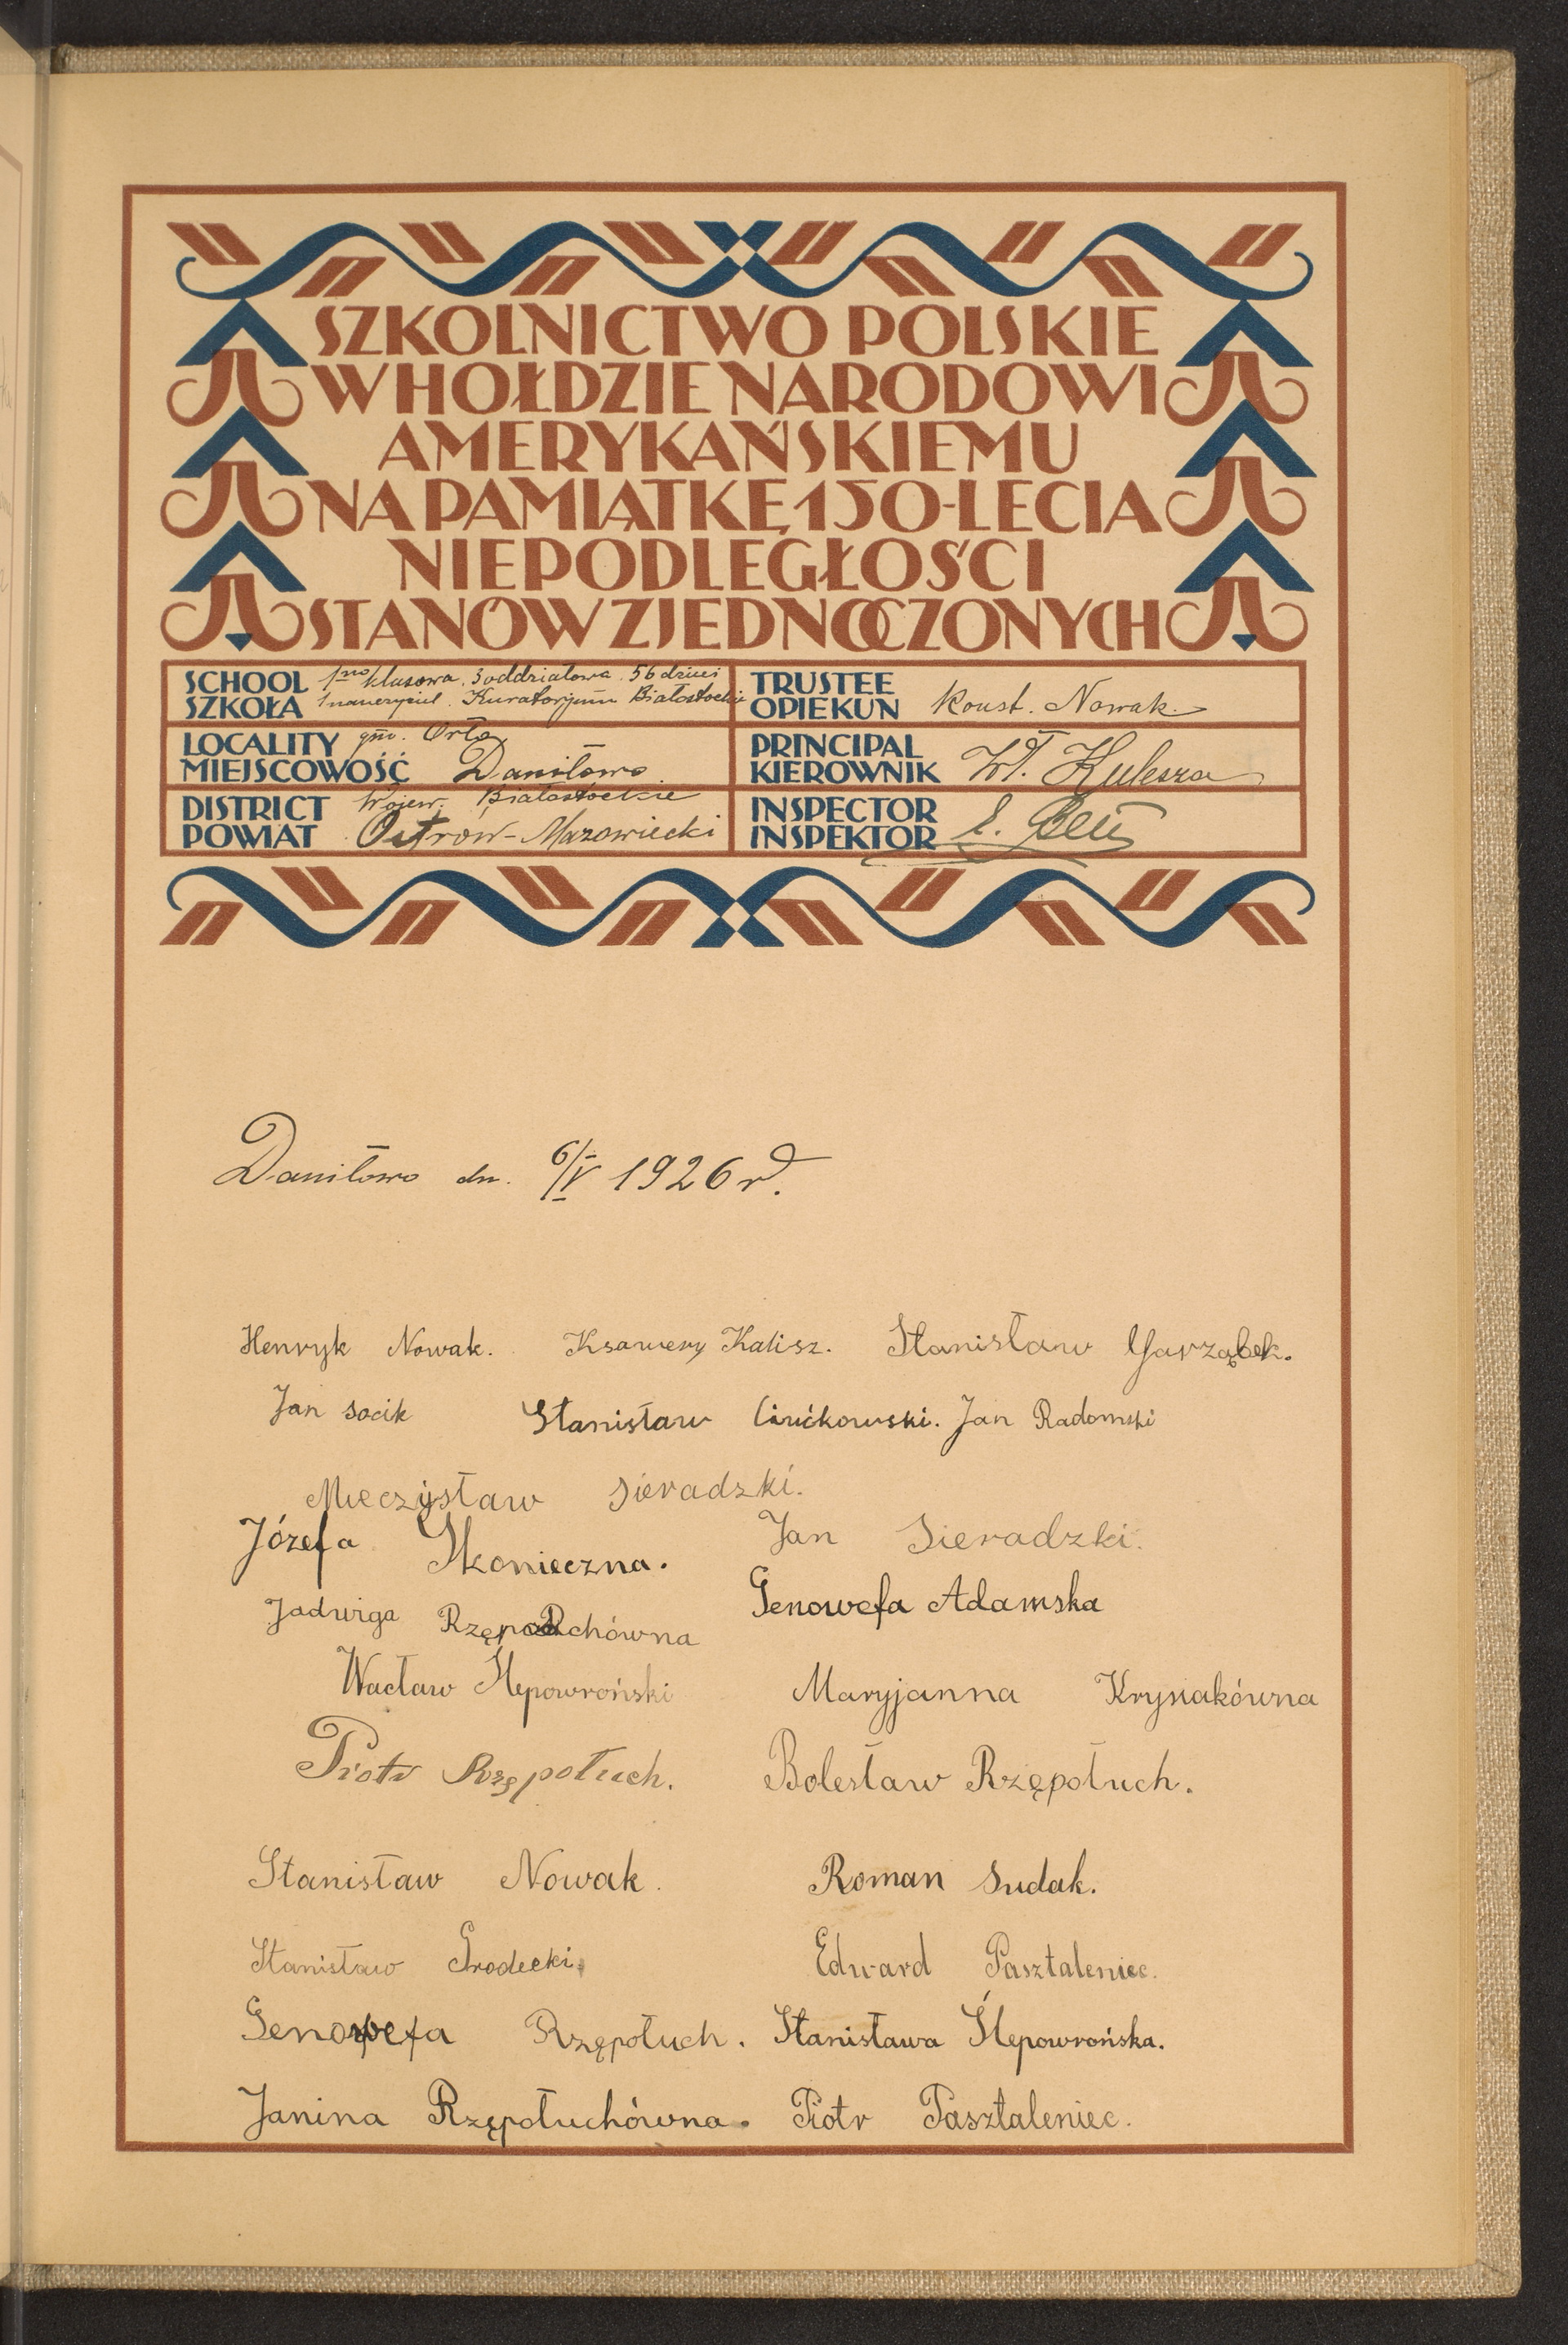 SZKOLNICTWO POLSKIE
W HOŁDZIE NARODOWI
AMERYKAŃSKIEMU
NA PAMIĄTKĘ 150-LECIA
NIEPODLEGŁOŚCI
STANÓW ZJEDNOCZONYCH
SCHOOL SZKOŁA 1no klasowa. 3 oddziałowa. 56 dzieci
1 nauczyciel. Kuratorjum Białostockie
TRUSTEE OPIEKUN Konst. Nowak
LOCALITY MIEJSCOWOŚĆ gm. Orło
Daniłowo.
PRINCIPAL KIEROWNIK Wł. Kulesza
DISTRICT POWIAT Wojew. Białostockie
Ostrów-Mazowiecki
INSPECTOR INSPEKTOR
Daniłowo dn. 6/V 1926 r.
Henryk Nowak. Ksawery Kalisz. Stanisław Jarząbek.
Jan Socik Stanisław Jan Radomski
Mieczysław Sieradzki.
Józefa Skonieczna. Jan Sieradzki.
Jadwiga Genowefa Adamska
Wacław Ślepowroński Maryjanna Krysiakówna
Piotr Rzępołuch. Bolesław Rzępołuch.
Stanisław Nowak. Roman Sudak.
Stanisław Grodecki. Edward Pasztaleniec.
Genowefa Rzępołuch. Stanisława Ślepowrońska.
Janina Rzępołuchówna. Piotr Pasztaleniec.